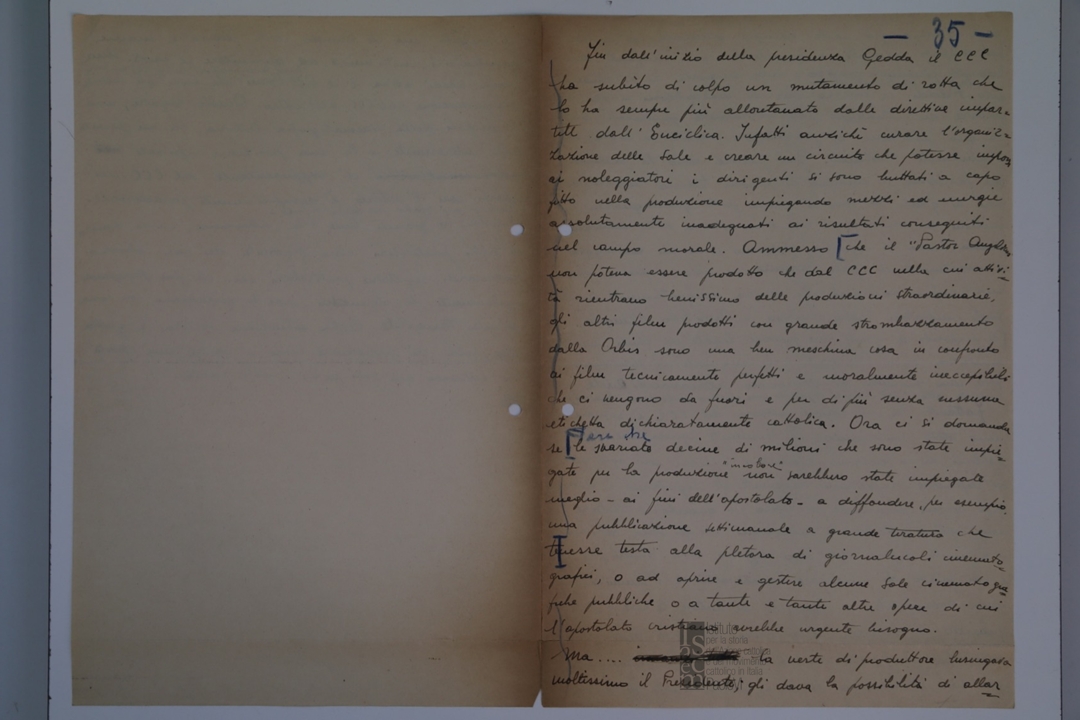 — 35 —
Fin dall'inizio della presidenza Gedda il CCC
ha subito di colpo un mutamento di rotta che
lo ha sempre più allontanato dalle direttive impar-
tite dall'Enciclica. Infatti anziché curare l'organiz-
zazione delle Sale e creare un circuito che potesse imporsi
ai noleggiatori i dirigenti si sono buttati a capo
fitto nella produzione impiegando mezzi ed energie
assolutamente inadeguati ai risultati conseguiti
nel campo morale. Ammesso [che il "Pastor Angelicus
non poteva essere prodotto che dal CCC nella cui attivi-
tà rientrano benissimo delle produzioni straordinarie,
gli altri film prodotti con grande strombazzamento
dalla Orbis sono una ben meschina cosa in confronto
ai film tecnicamente perfetti e moralmente ineccepibili
che ci vengono da fuori e per di più senza nessuna
etichetta dichiaratamente cattolica. Ora ci si domanda
se [le svariate decine di milioni che sono state impie-
gate per la produzione non sarebbero state impiegate
meglio - ai fini dell'apostolato - a diffondere, per esempio,
una pubblicazione settimanale a grande tiratura che
tenesse testa alla pletora di giornalucoli cinemato-
grafici, o ad aprire e gestire alcune Sale cinematogra
fiche pubbliche o a tante e tante altre opere di cui
l'apostolato cristiano avrebbe urgente bisogno.
Ma.... la veste di produttore lusingava
moltissimo il Presidente; gli dava la possibilità di allar
Istituto
per la storia
cattolico in Italia